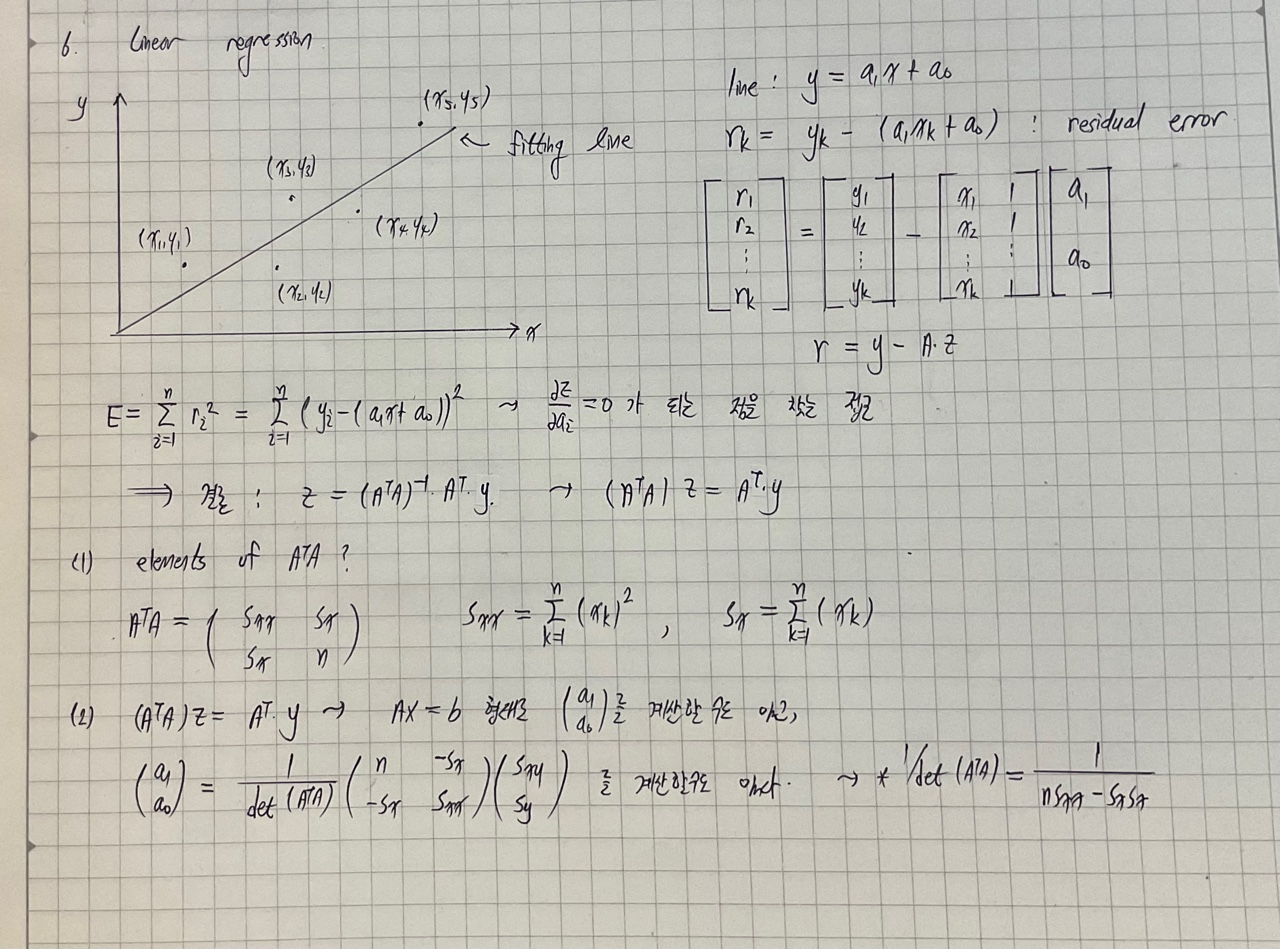 6. linear regression
y
(x₅, y₅)
← fitting line
(x₃, y₃)
(x₁, y₁)
(x₄, y₄)
(x₂, y₂)
x
line : y = a₁x + a₀
rₖ = yₖ - (a₁xₖ + a₀) : residual error
[r₁ r₂ ⋮ rₖ] = [y₁ y₂ ⋮ yₖ] - [x₁ 1 x₂ 1 ⋮ ⋮ xₖ 1] [a₁ a₀]
r = y - A·z
E = Σ_{i=1}^{n} rᵢ² = Σ_{i=1}^{n} (yᵢ - (a₁x + a₀))² ⇝ ∂E/∂aᵢ = 0 가 되는 점을 찾는 접근
⟹ 결론 : z = (AᵀA)⁻¹·Aᵀ·y. → (AᵀA) z = Aᵀ·y
(1) elements of AᵀA ?
AᵀA = (Sxx Sx / Sx n) Sxx = Σ_{k=1}^{n} (xₖ)², Sx = Σ_{k=1}^{n} (xₖ)
(2) (AᵀA) z = Aᵀ·y → AX = b 형태로 (a₁ a₀)를 계산할 수도 있고,
(a₁ a₀) = 1/det(AᵀA) (n -Sx / -Sx Sxx) (Sxy Sy) 를 계산할수도 있다. ⇝ * 1/det(AᵀA) = 1/(nSxx - SxSx)